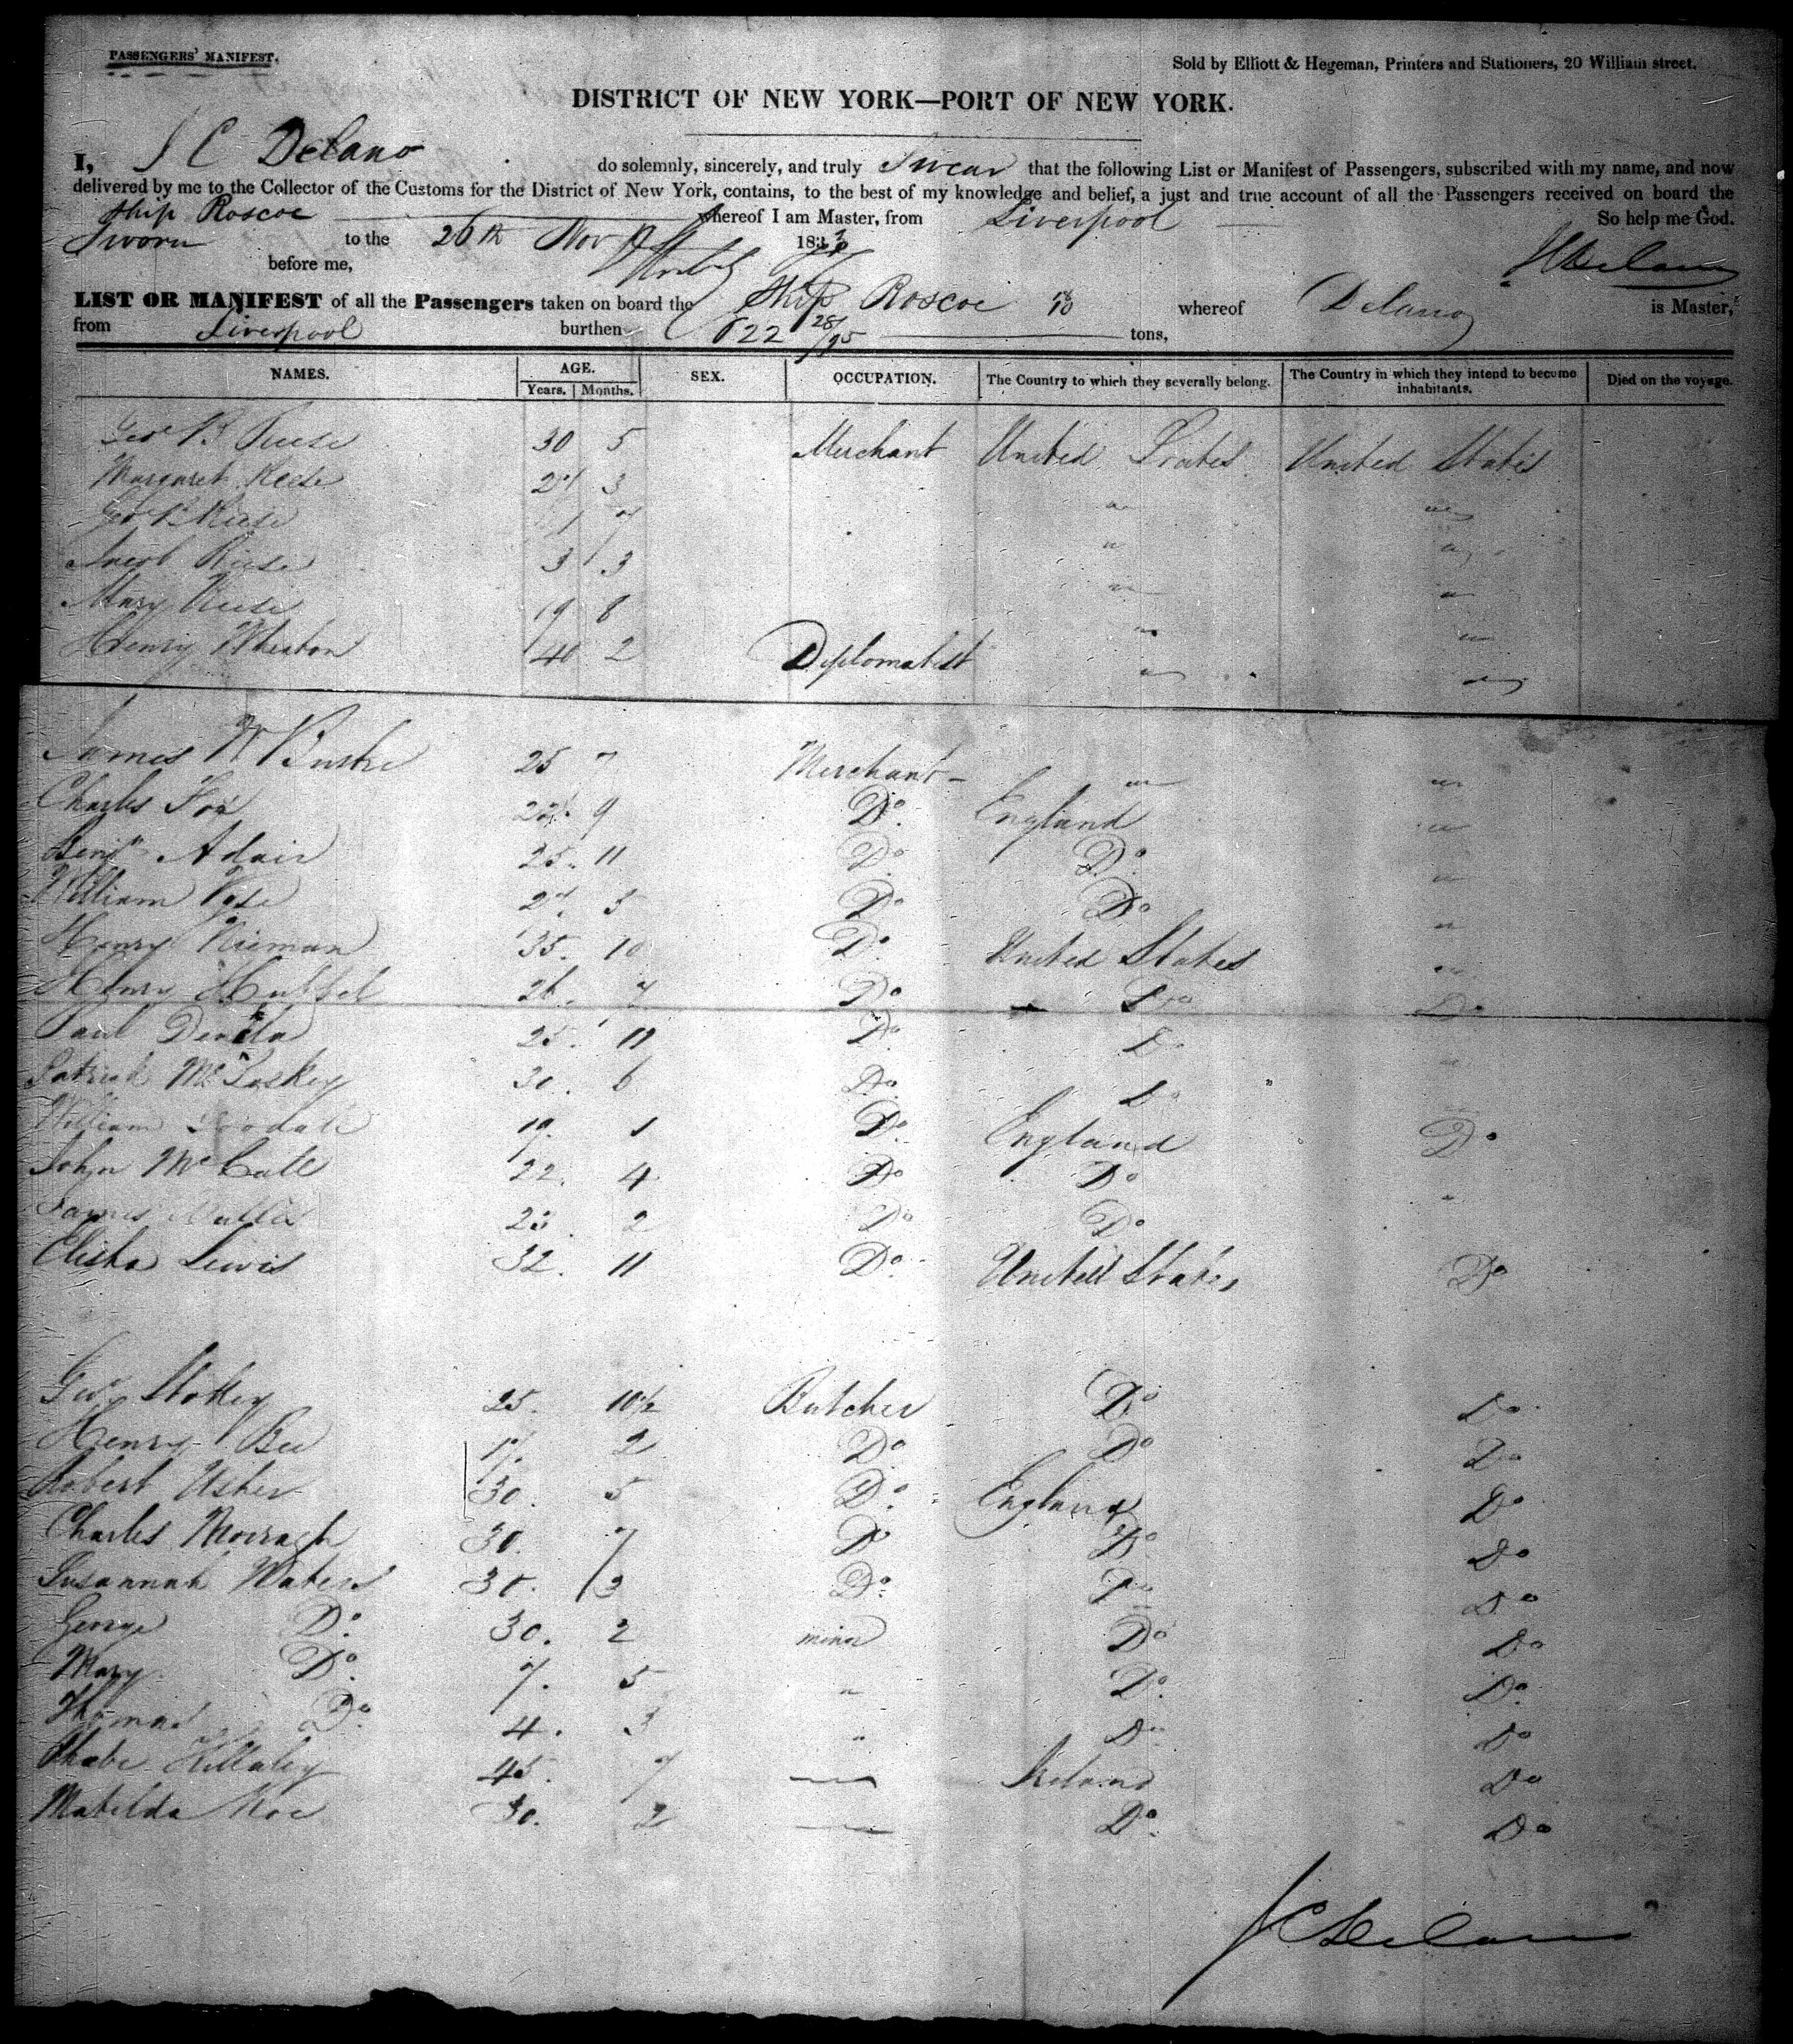 PASSENGERS' MANIFEST.
Sold by Elliott & Hegeman, Printers and Stationers, 20 William street.
DISTRICT OF NEW YORK—PORT OF NEW YORK.
I, J C Delano do solemnly, sincerely, and truly Swear that the following List or Manifest of Passengers, subscribed with my name, and now
delivered by me to the Collector of the Customs for the District of New York, contains, to the best of my knowledge and belief, a just and true account of all the Passengers received on board the
Ship Roscoe whereof I am Master, from Liverpool So help me God.
Sworn to the 26th Nov 183
before me, JCDelano
LIST OR MANIFEST of all the Passengers taken on board the Ship Roscoe whereof Delano is Master,
from Liverpool burthen 622 28/95 tons,
NAMES. AGE. SEX. OCCUPATION. The Country to which they severally belong. The Country in which they intend to become inhabitants. Died on the voyage.
Years. Months.
Geo B Reese 30 5 Merchant United States United States
Margaret Reese 3 " "
Geo B Reese 7 " "
Jacob Reese 3 3 " "
Mary Reese 19 8 " "
Henry Wheaton 40 2 Diplomatist " "
James W 25 7 Merchant " "
Charles Fox 9 Do England "
Benjn Adair 25. 11 Do Do "
William 5 Do Do "
Henry 35. 10 Do United States "
Henry 26. 7 Do Do Do
Paul 25. 11 Do Do "
Patrick Mc 30. 6 Do Do
William 19. 1 Do England Do
John McCall 22. 4 Do Do "
James 23. 2 Do Do
Elisha Lewis 32. 11 Do United States Do
Geo 25. 10½ Butcher Do Do
Henry Bee 2 Do Do Do
Robert Usher 30. 5 Do England Do
Charles 30. 7 Do Do Do
Susannah Waters 30. 3 Do Do Do
George Do 30. 2 minor Do Do
Mary Do 7. 5 " Do Do
Thomas Do 4. 3 " Do Do
Phebe 45. 7 — Ireland Do
Matilda 30. 2 — Do Do
JCDelano